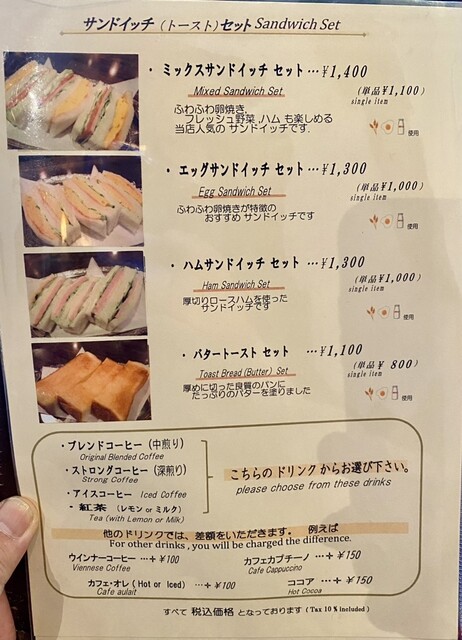 サンドイッチ (トースト) セット Sandwich Set
・ ミックスサンドイッチ セット … ¥1,400
Mixed Sandwich Set (単品¥1,100)
single item
ふわふわ卵焼き、
フレッシュ野菜,ハム も楽しめる
当店人気の サンドイッチです.
使用
・ エッグサンドイッチ セット … ¥1,300
Egg Sandwich Set (単品¥1,000)
single item
ふわふわ卵焼きが特徴の
おすすめ サンドイッチです
使用
・ ハムサンドイッチ セット … ¥1,300
Ham Sandwich Set (単品¥1,000)
single item
厚切りロースハムを使った
サンドイッチです
使用
・ バタートースト セット … ¥1,100
Toast Bread (Butter) Set (単品¥ 800)
single item
厚めに切った良質のパンに
たっぷりのバターを塗りました
使用
・ブレンドコーヒー (中煎り)
Original Blended Coffee
・ストロングコーヒー (深煎り)
Strong Coffee
・アイスコーヒー Iced Coffee
・紅茶 (レモン or ミルク)
Tea (with Lemon or Milk)
こちらの ドリンク からお選び下さい。
please choose from these drinks
他のドリンクでは、差額をいただきます。 例えば
For other drinks , you will be charged the difference.
ウインナーコーヒー …+ ¥100 カフェカプチーノ …+ ¥150
Viennese Coffee Cafe Cappuccino
カフェ・オレ ( Hot or Iced ) …+ ¥100 ココア …+ ¥150
Cafe aulait Hot Cocoa
すべて 税込価格 となっております ( Tax 10 % included )